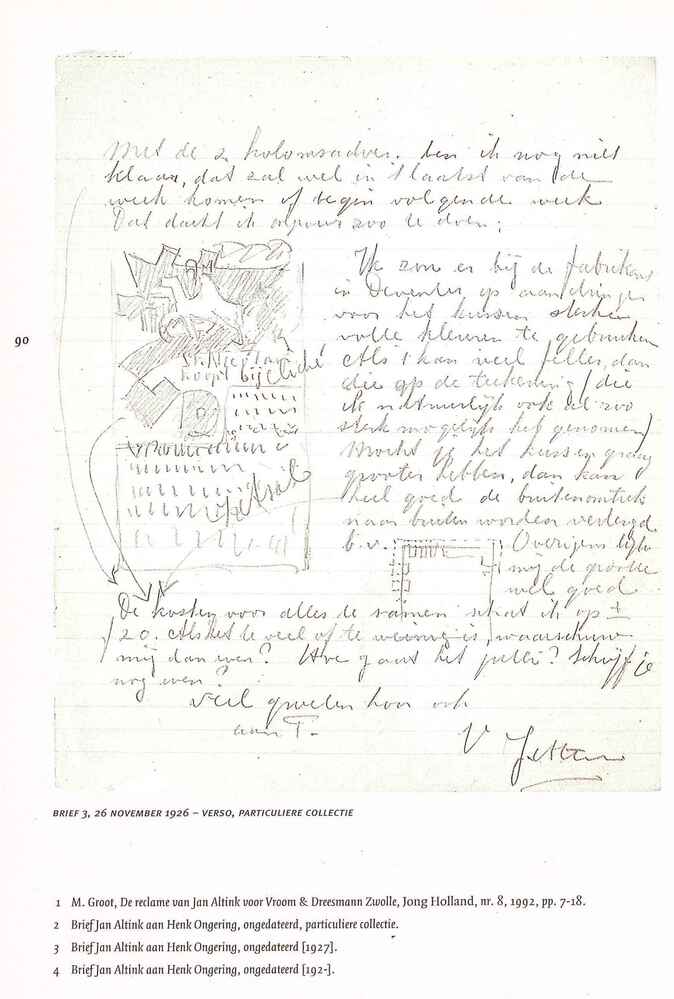 Met de 2 kolomsadver. ben ik nog niet
klaar, dat zal wel in 't laatst van de
week komen of begin volgende week
Dat dacht ik zoo te doen:
Ik zou er bij de fabrikant
in Deventer op aandringen
voor het kussen sterke
volle kleuren te gebruiken
Als 't kan veel feller dan
die op de teekening (die
ik natuurlijk ook al zoo
sterk mogelijk heb genomen)
Mocht je het kussen graag
grooter hebben, dan kan
heel goed de buitenomtrek
naar buiten worden verlengd
b.v. Overigens lijkt
mij de grootte
wel goed
bij cliché
De kosten voor alles de ramen schat ik op ±
ƒ20. Als het te veel of te weinig is, waarschuw
mij dan even? Hoe gaat het jullie? Schrijf je
nog even?
Veel groeten hoor ook
aan T.
90
BRIEF 3, 26 NOVEMBER 1926 – VERSO, PARTICULIERE COLLECTIE
1 M. Groot, De reclame van Jan Altink voor Vroom & Dreesmann Zwolle, Jong Holland, nr. 8, 1992, pp. 7-18.
2 Brief Jan Altink aan Henk Ongering, ongedateerd, particuliere collectie.
3 Brief Jan Altink aan Henk Ongering, ongedateerd [1927].
4 Brief Jan Altink aan Henk Ongering, ongedateerd [192-].